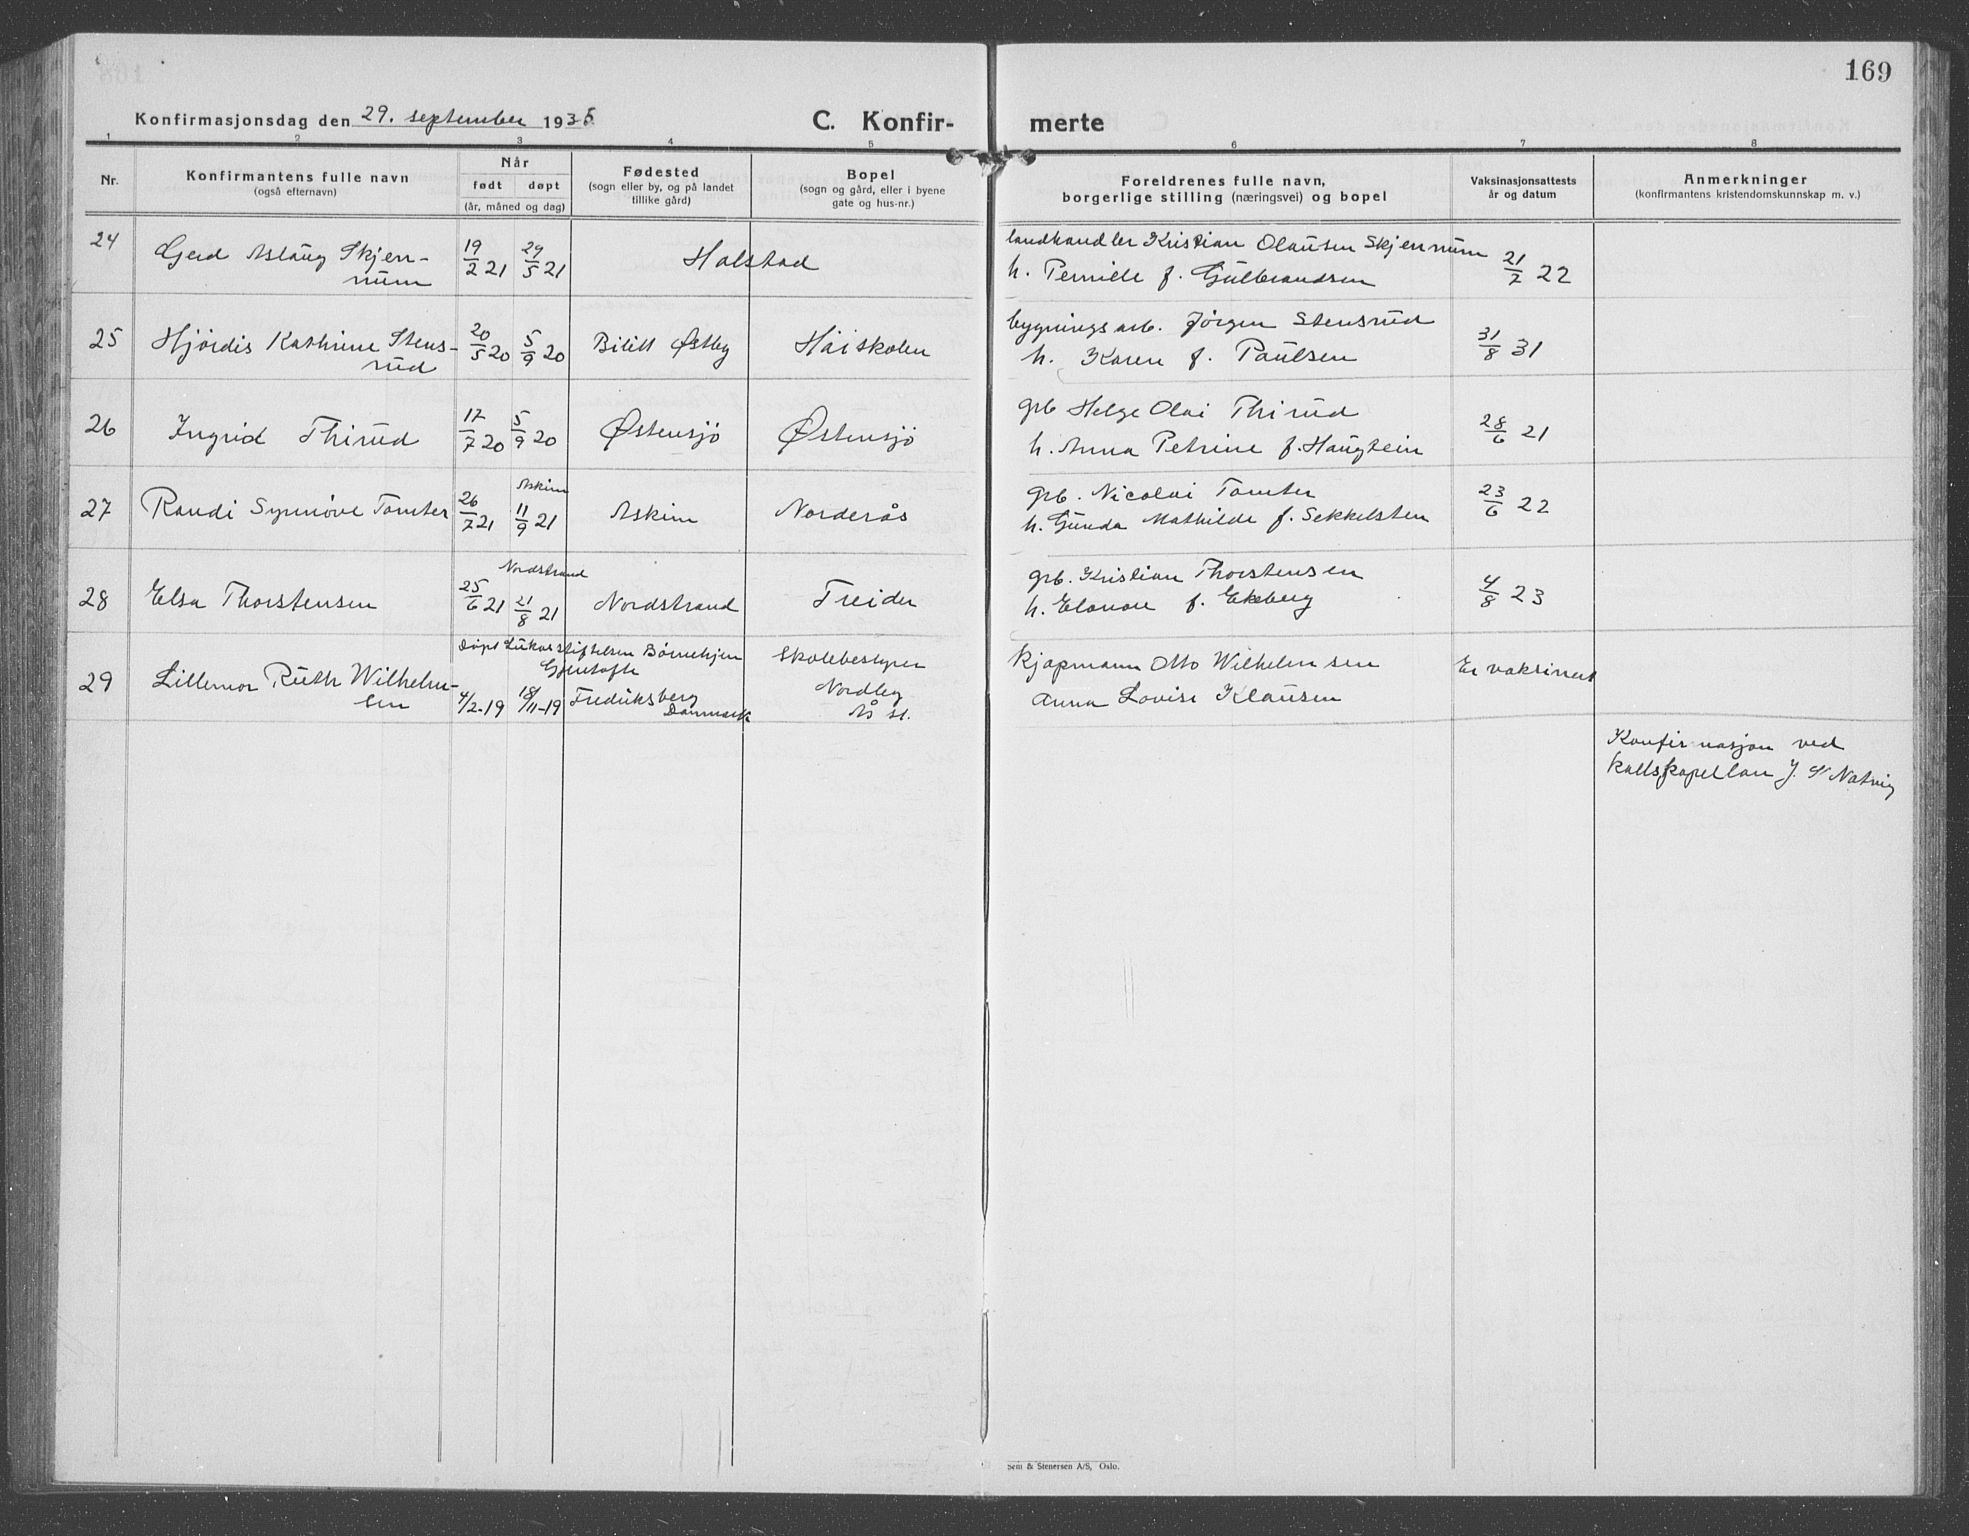 169
Konfirmasjonsdag den 29. september 1935
C. Konfir-
merte
1 2 3 4 5 6 7 8
Nr.
Konfirmantens fulle navn
(også efternavn)
Når
født døpt
(år, måned og dag)
Fødested
(sogn eller by, og på landet
tillike gård)
Bopel
(sogn og gård, eller i byene
gate og hus-nr.)
Foreldrenes fulle navn,
borgerlige stilling (næringsvei) og bopel
Vaksinasjonsattests
år og datum
Anmerkninger
(konfirmantens kristendomskunnskap m. v.)
24 Gerd Aslaug Skjer-
num
19/2 21 29/5 21 Halstad
landhandler Kristian Olausen Skjernnum
h. Pernille f. Gulbrandsen
21/7 22
25 Hjördis Kathrine Stens-
rud
20/5 20 5/9 20 Bilitt Østby Høiskolen
bygningsarb. Jörgen Stensrud
h. Karen f. Paulsen
31/8 31
26 Ingrid Thirud 17/7 20 5/9 20 Østensjö Østensjö
grb Helge Olai Thirud
h. Anna Petrine f. Haugtein
28/6 21
Askim
27 Randi Synnöve Tomter 26/7 21 11/9 21 Askim Norderås
grb. Nicolai Tomter
h. Gunda Mathilde f. Sekkelsten
23/6 22
Nordstrand
28 Elsa Thorstensen 25/6 21 21/8 21 Nordstrand Treider
grb. Kristian Thorstensen
h. Elonore f. Ekeberg
4/8 23
Döpt Lukasstiftelsen Börnehjem
Gjentofte
29 Lillemor Ruth Wilhelm-
sen
4/2-19 18/11-19 Fredriksberg
Danmark
Skolebestyrer
Nordby
Ås st.
Kjøpmann Otto Wilhelmsen
Anna Lovise Klausen
Er vaksinert
Konfirmasjon ved
kallskapellan J. S. Natvig
Sem & Stenersen A/S, Oslo.